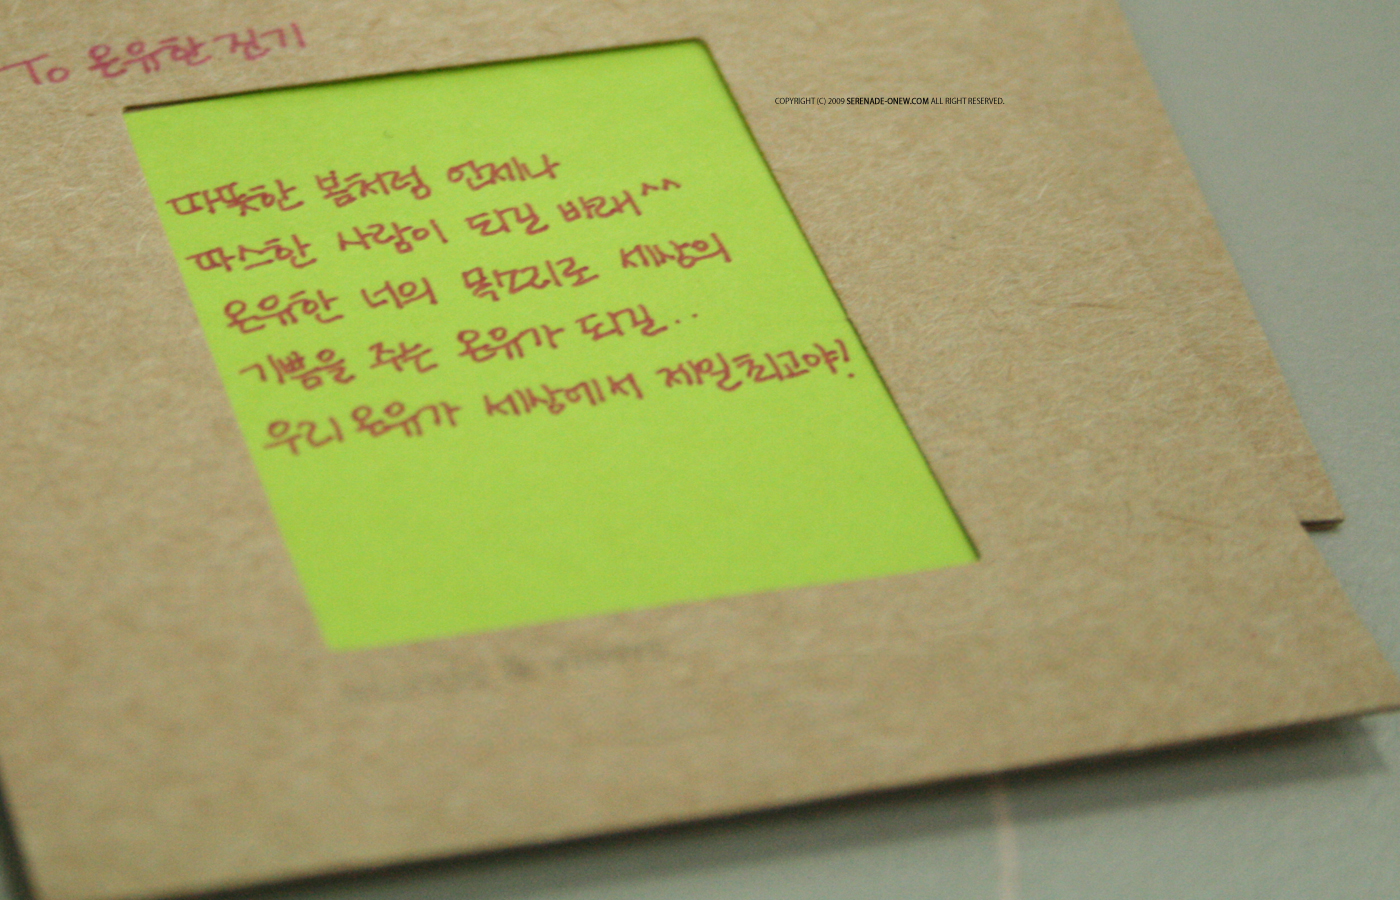 To 온유한 진기
COPYRIGHT (C) 2009 SERENADE-ONEW.COM ALL RIGHT RESERVED.
따뜻한 봄처럼 언제나
따스한 사람이 되길 바래^^
온유한 너의 목소리로 세상의
기쁨을 주는 온유가 되길..
우리 온유가 세상에서 제일 최고야!